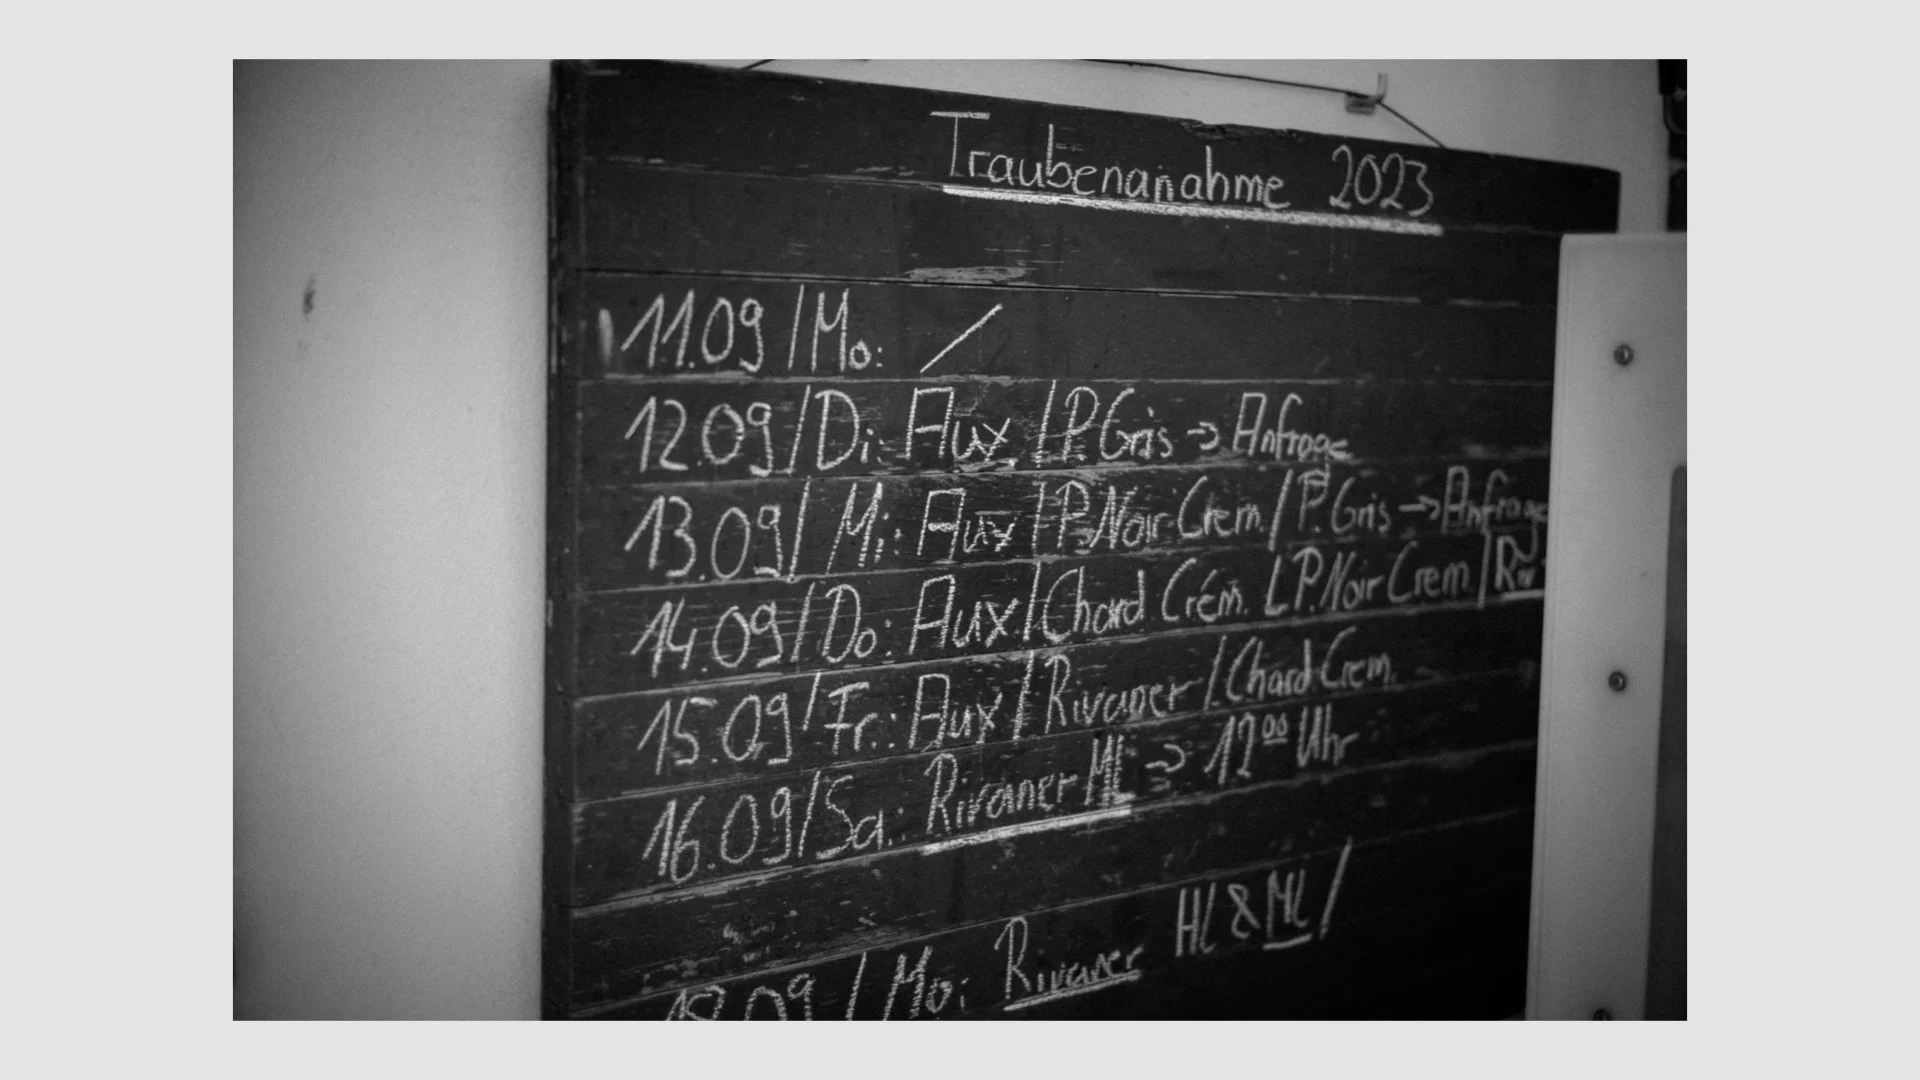 Traubenanahme 2023
11.09 /Mo: /
12.09/Di: Aux /P.Gris → Anfrage
13.09/ Mi: Aux /P.Noir Crem. / P. Gris → Anfrage
14.09/Do: Aux/Chard Crém. / P.Noir Crem. / Riv
15.09/Fr.: Aux / Rivaner / Chard Crem.
16.09/Sa.: Rivaner ML → 12⁰⁰ Uhr
18.09 / Mo: Rivaner HL & ML /